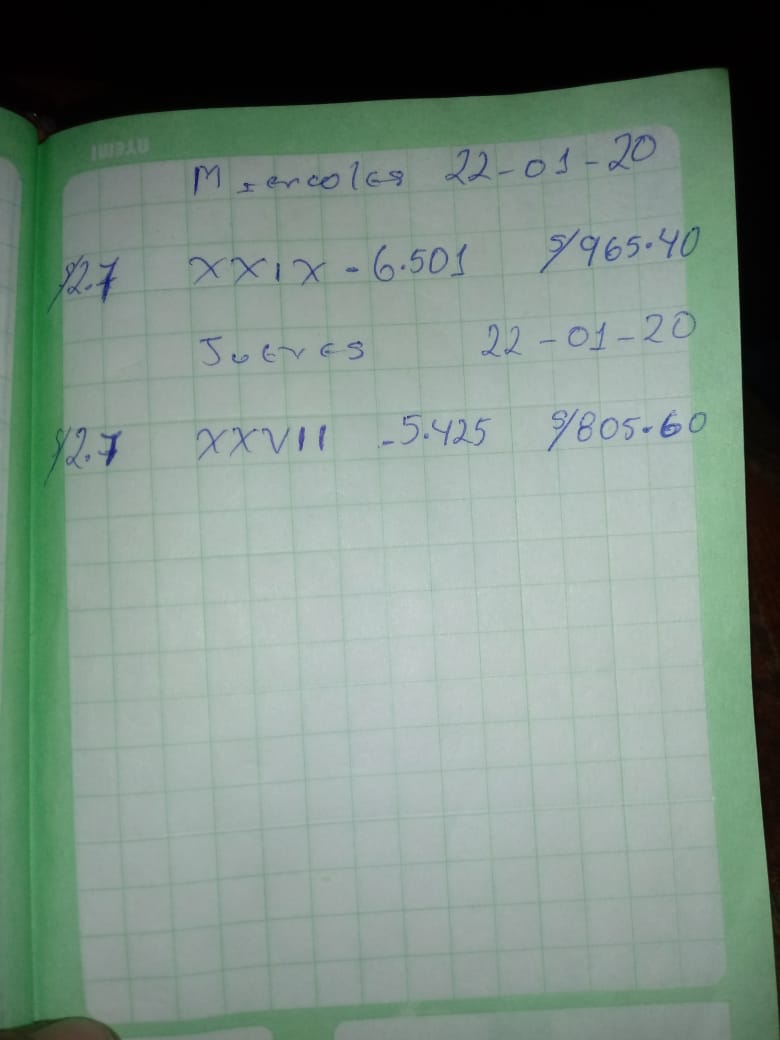 ayemi
Miercoles 22-01-20
S/2.7 XXIX - 6.501 S/965.40
Jueves 22-01-20
S/2.7 XXVII - 5.425 S/805.60